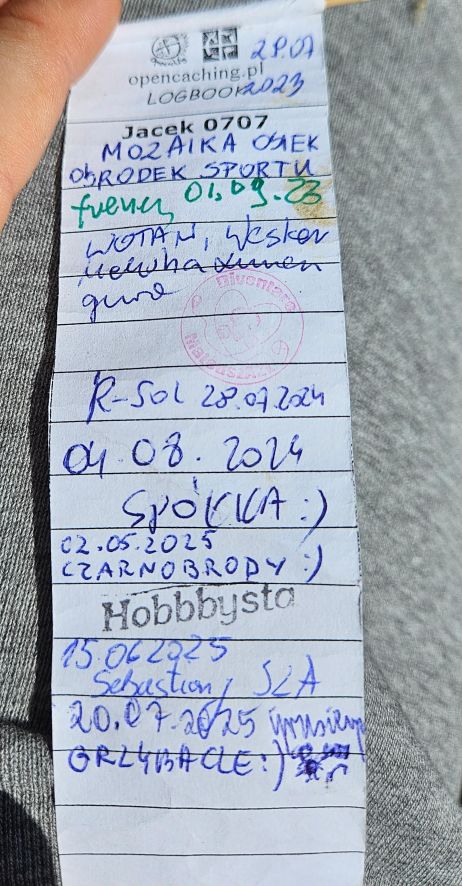 28.07
opencaching.pl
LOGBOOK 2023
Jacek 0707
MOZAIKA OSIEK
OŚRODEK SPORTU
01.09.23
WOTAN, Wesker
Diventare
R-SOL 28.07.2024
04.08.2024
SPÓKKA :)
02.05.2025
CZARNOBRODY :)
Hobbbysta
15.06.2025
Sebastian, SZA
20.07.2025
GRZYBACLE :)